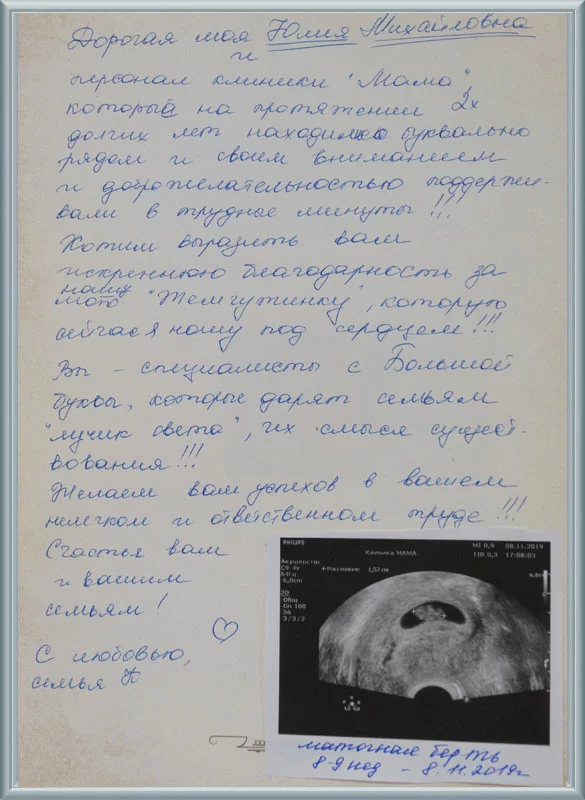 Дорогая моя Юлия Михайловна
и
персонал клиники "Мама",
который на протяжении 2х
долгих лет находились буквально
рядом и своим вниманием
и доброжелательностью поддержи-
вали в трудные минуты!!!
Хотим выразить вам
искреннюю благодарность за
нашу
"Жемчужинку", которую
сейчас я ношу под сердцем!!!
Вы - специалисты с Большой
буквы, которые дарят семьям
"лучик света", их смысл сущест-
вования!!!
Желаем вам успехов в вашем
нелегком и ответственном труде!!!
Счастья вам
и вашим
семьям!
С любовью,
семья
PHILIPS
MI 0,9 08.11.2019
Клиника МАМА
TIB 0,3 17:08:03
Акушерство
C9-4v
64Гц
6,0см
+ Расстояние 1,57 см
6,0см
2D
Общ
Gn 100
56
3/3/2
маточная бер-ть
8-9 нед - 8.11.2019г.